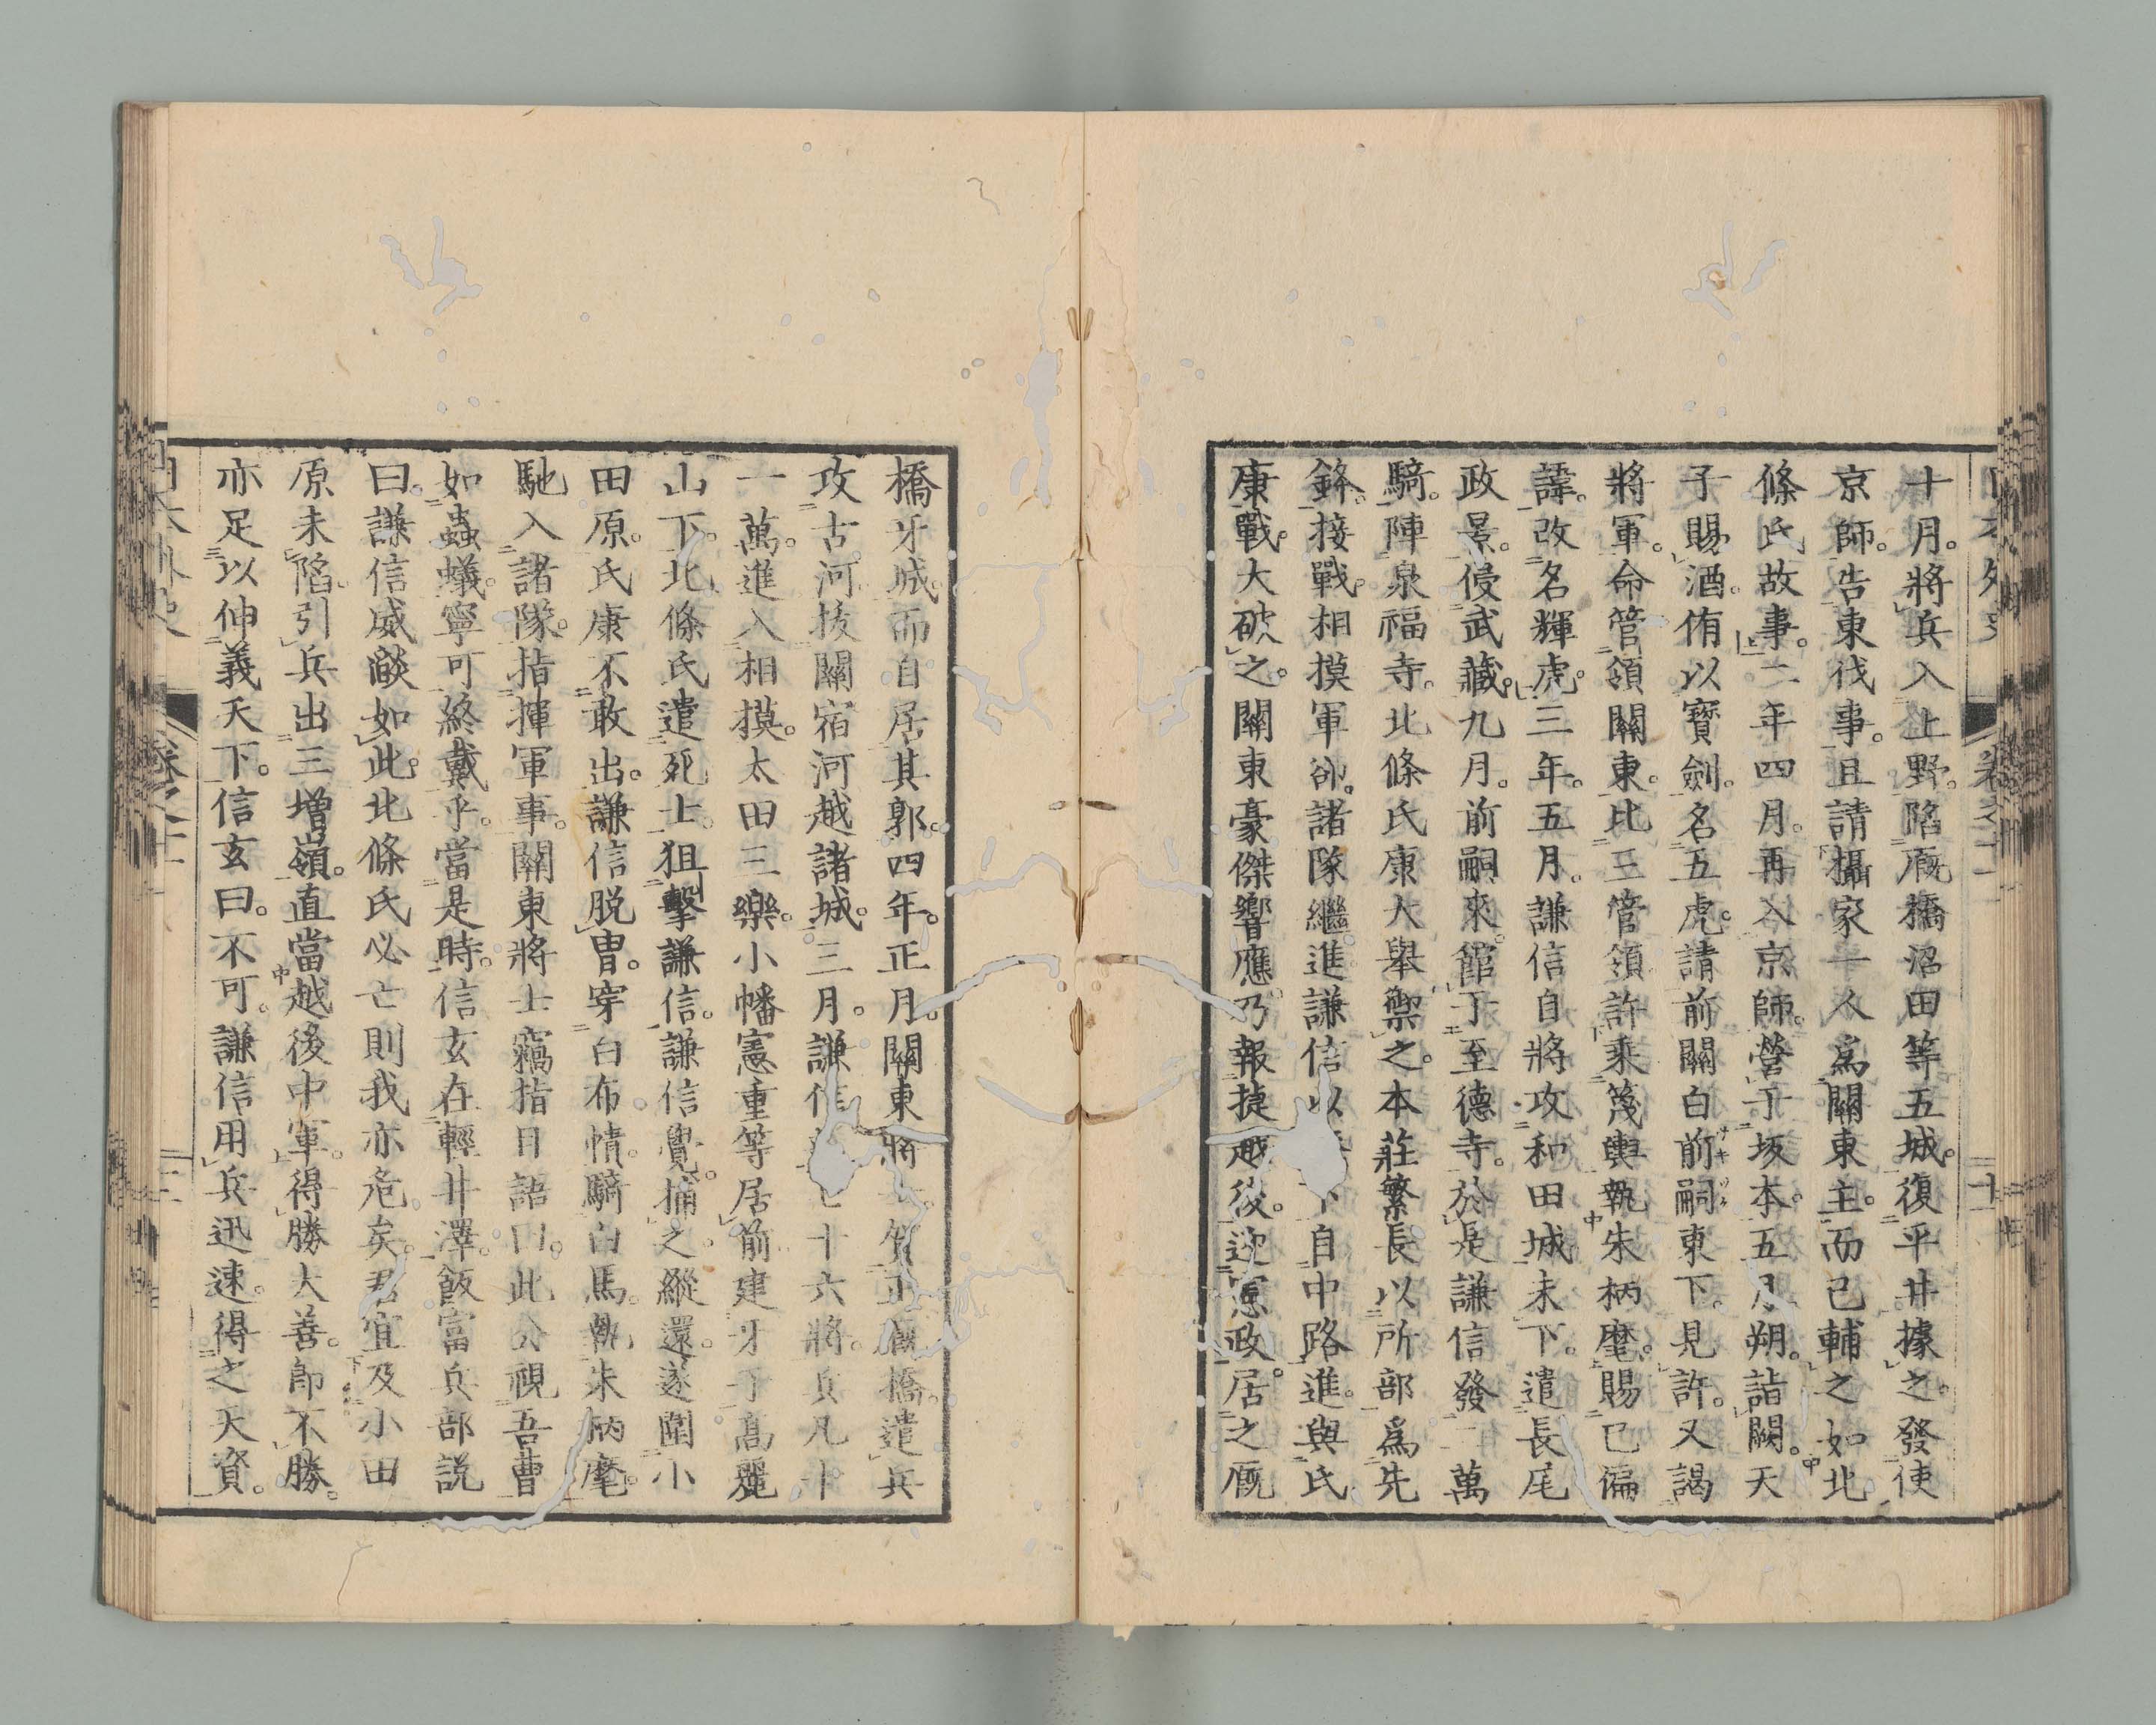 十月。將兵入上野。陷厩橋沼田等五城。復平井據之。發使
京師。告東伐事。且請攝家一人爲關東主。而己輔之如北
條氏故事。二年四月。再入京師。營于坂本。五月朔。詣闕。天
子賜酒。侑以寶劍。名五虎。請前關白前嗣東下。見許。又謁
將軍。命管領關東。比三管領。許乘篼輿。執朱柄麾。賜己偏
諱。改名輝虎。三年。五月。謙信自將攻和田城。未下。遣長尾
政景。侵武藏。九月。前嗣來。館于至德寺。於是謙信發二萬
騎。陣泉福寺。北條氏康大舉禦之。本莊繁長以所部爲先
鋒。接戰。相摸軍卻。諸隊繼進。謙信以 自中路進。與氏
康戰。大破之。關東豪傑響應。乃報捷越後。迎憲政。居之厩
橋牙城。而自居其郭。四年。正月。關東將 賀正厩橋。遣兵
攻古河。拔關宿河越諸城。三月。謙信 七十六將。兵凡十
一萬。進入相摸。太田三樂。小幡憲重等居前。建牙于高麗
山下。北條氏遣死士。狙擊謙信。謙信覺。捕之。縱還。遂圍小
田原。氏康不敢出。謙信脱冑。穿白布。幘。騎白馬。執朱柄麾。
馳入諸隊。指揮軍事。關東將士竊指目語曰。此公視吾曹
如蟲蟻。寧可終戴乎。當是時。信玄在輕井澤。飯富兵部説
曰。謙信威燄如此。北條氏必亡。則我亦危矣。君宜及小田
原未陷。引兵出三增嶺。直當越後中軍。得勝大善。卽不勝。
亦足以伸義天下。信玄曰。不可。謙信用兵迅速。得之天資。
日本外史 卷之十一